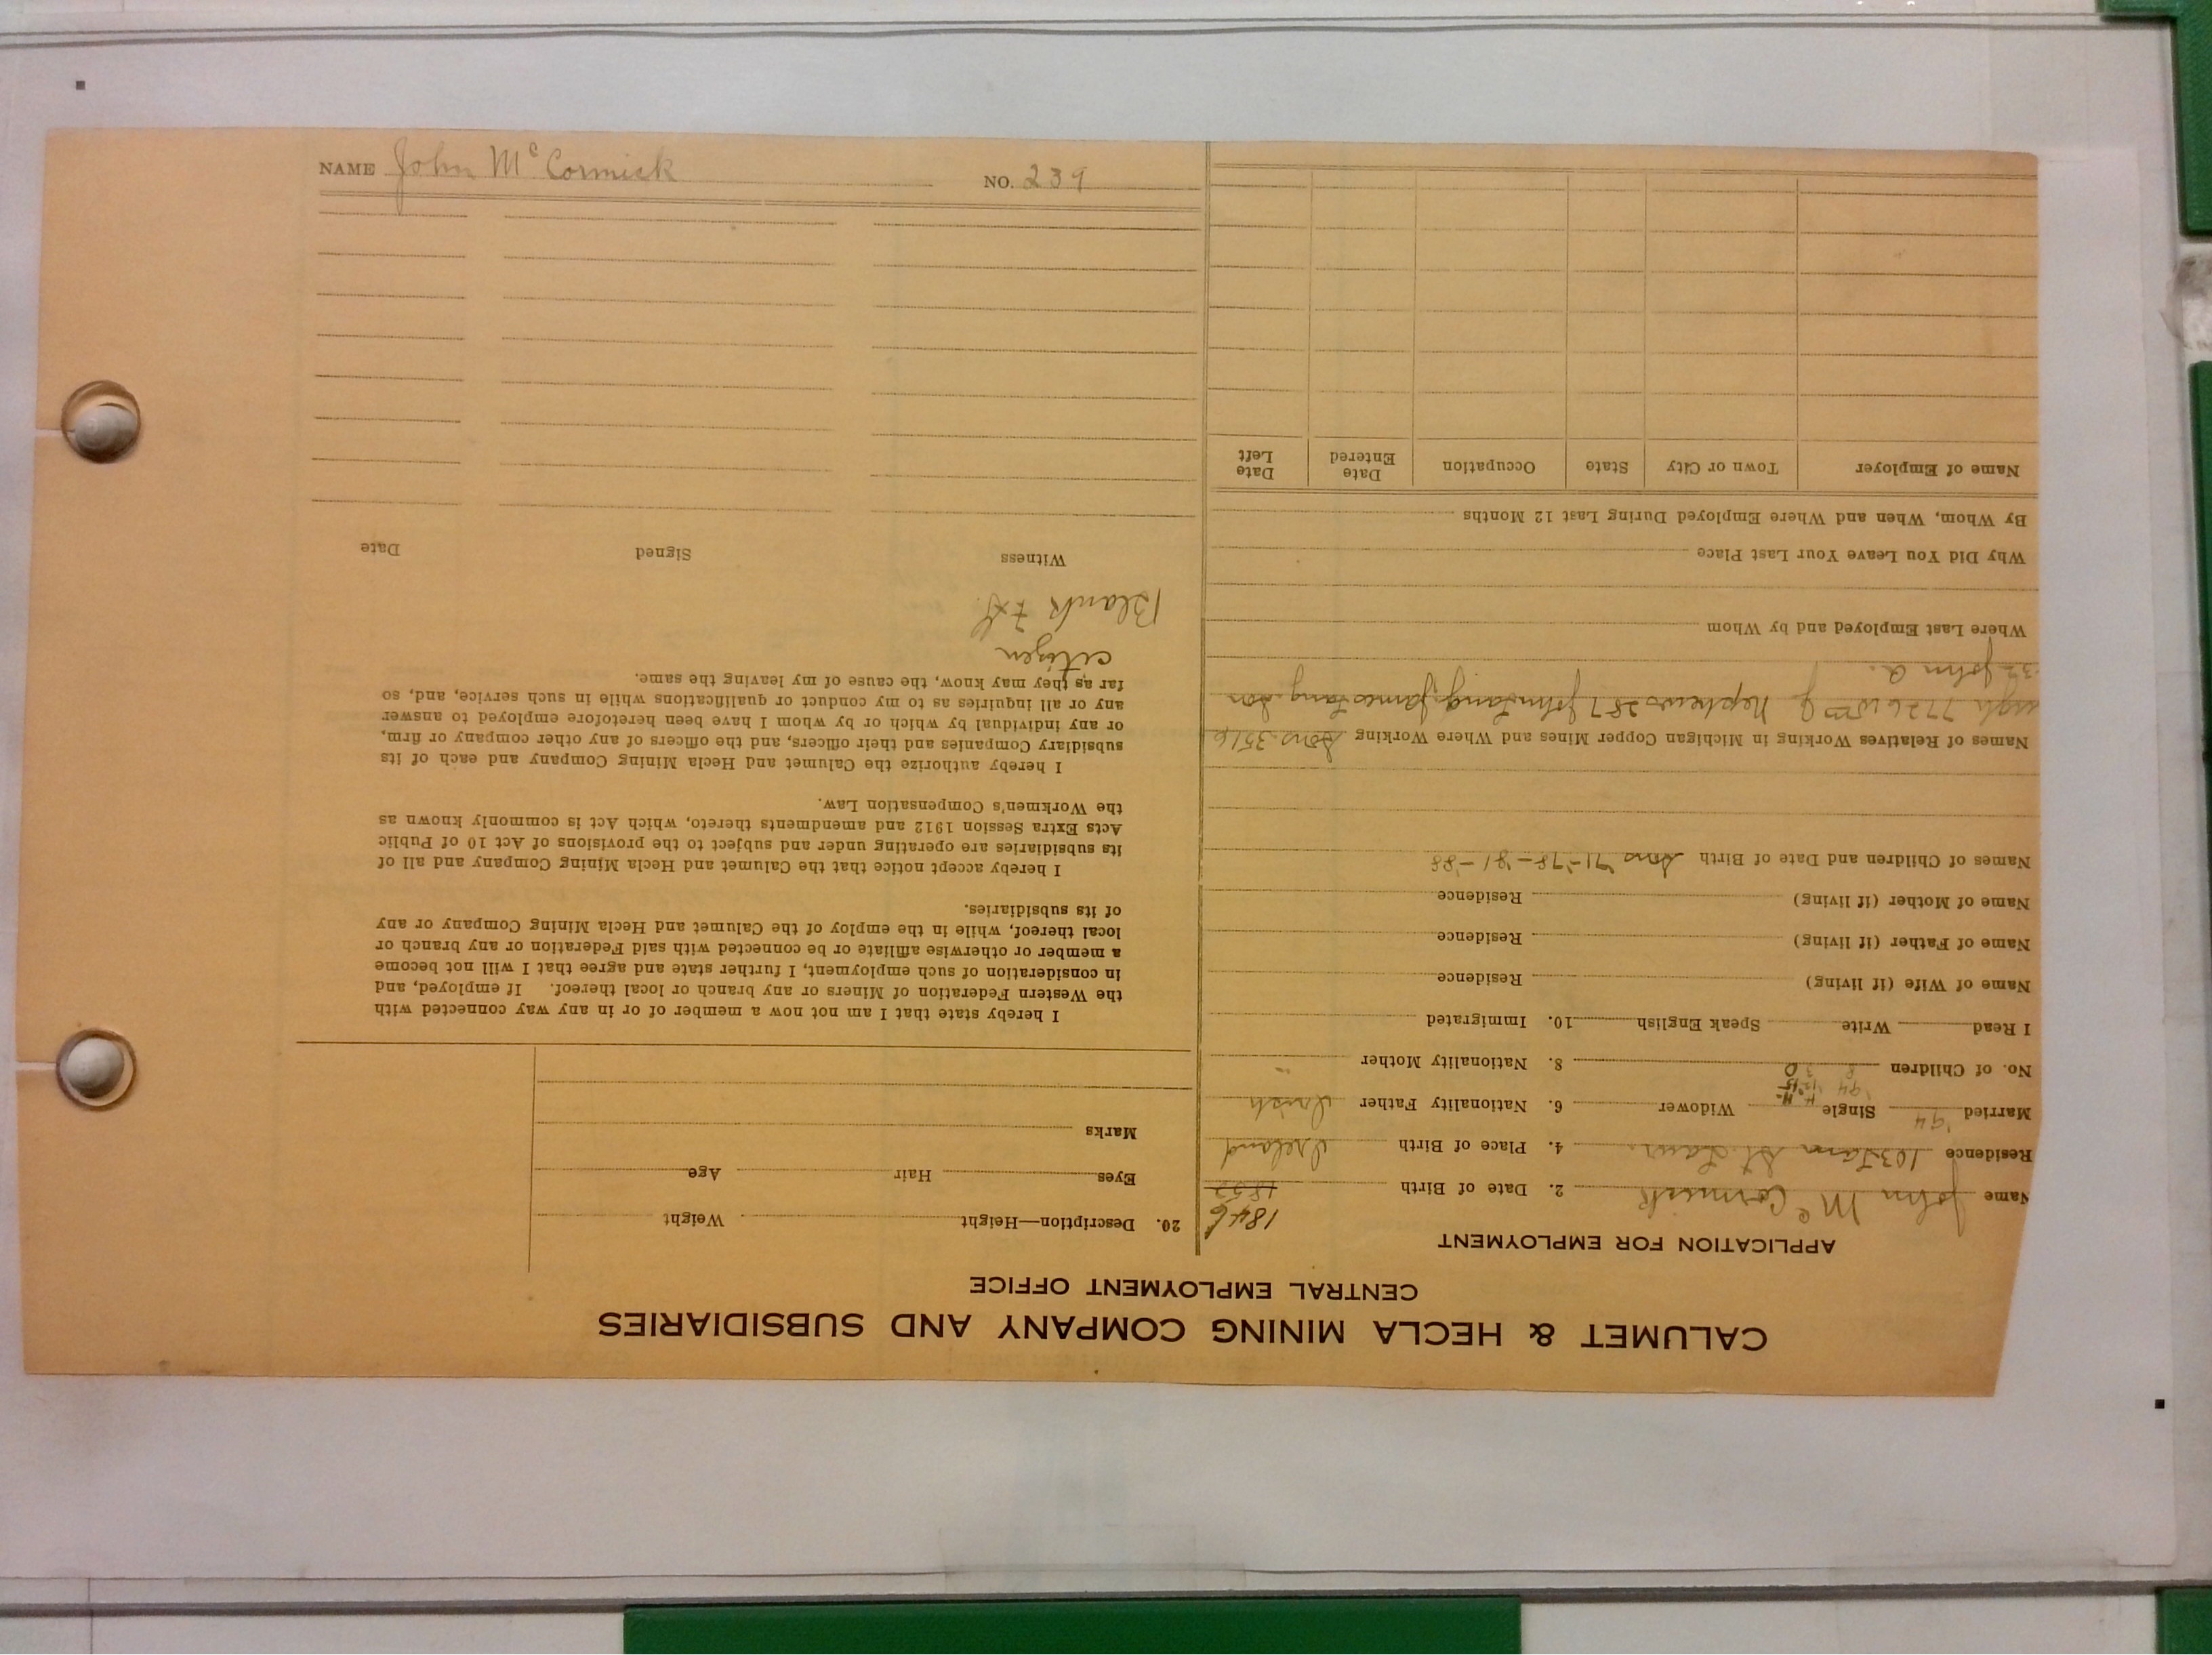 NAME John Mc Cormick NO. 239
CALUMET & HECLA MINING COMPANY AND SUBSIDIARIES
CENTRAL EMPLOYMENT OFFICE
APPLICATION FOR EMPLOYMENT
1846
Name John Mc Cormick 2. Date of Birth 1852
Residence 103 Tam St. Laur. 4. Place of Birth Ireland
Married '94 Single Widower 6. Nationality Father Irish
'94 12-15
No. of Children 8. Nationality Mother
I Read Write Speak English 10. Immigrated
Name of Wife (if living) Residence
Name of Father (if living) Residence
Name of Mother (if living) Residence
Names of Children and Date of Birth Sons 71-78-81-88
Names of Relatives Working in Michigan Copper Mines and Where Working Sons. 3516
7726 Wm J. Nephews 287 John Lang, James Lang. Son
32 John A.
Where Last Employed and by Whom
Why Did You Leave Your Last Place
By Whom, When and Where Employed During Last 12 Months
Name of Employer Town or City State Occupation Date Entered Date Left
20. Description—Height Weight
Eyes Hair Age
Marks
I hereby state that I am not now a member of or in any way connected with
the Western Federation of Miners or any branch or local thereof. If employed, and
in consideration of such employment, I further state and agree that I will not become
a member or otherwise affiliate or be connected with said Federation or any branch or
local thereof, while in the employ of the Calumet and Hecla Mining Company or any
of its subsidiaries.
I hereby accept notice that the Calumet and Hecla Mining Company and all of
its subsidiaries are operating under and subject to the provisions of Act 10 of Public
Acts Extra Session 1912 and amendments thereto, which Act is commonly known as
the Workmen's Compensation Law.
I hereby authorize the Calumet and Hecla Mining Company and each of its
subsidiary Companies and their officers, and the officers of any other company or firm,
or any individual by which or by whom I have been heretofore employed to answer
any or all inquiries as to my conduct or qualifications while in such service, and, so
far as they may know, the cause of my leaving the same.
citizen
Blank
Witness Signed Date